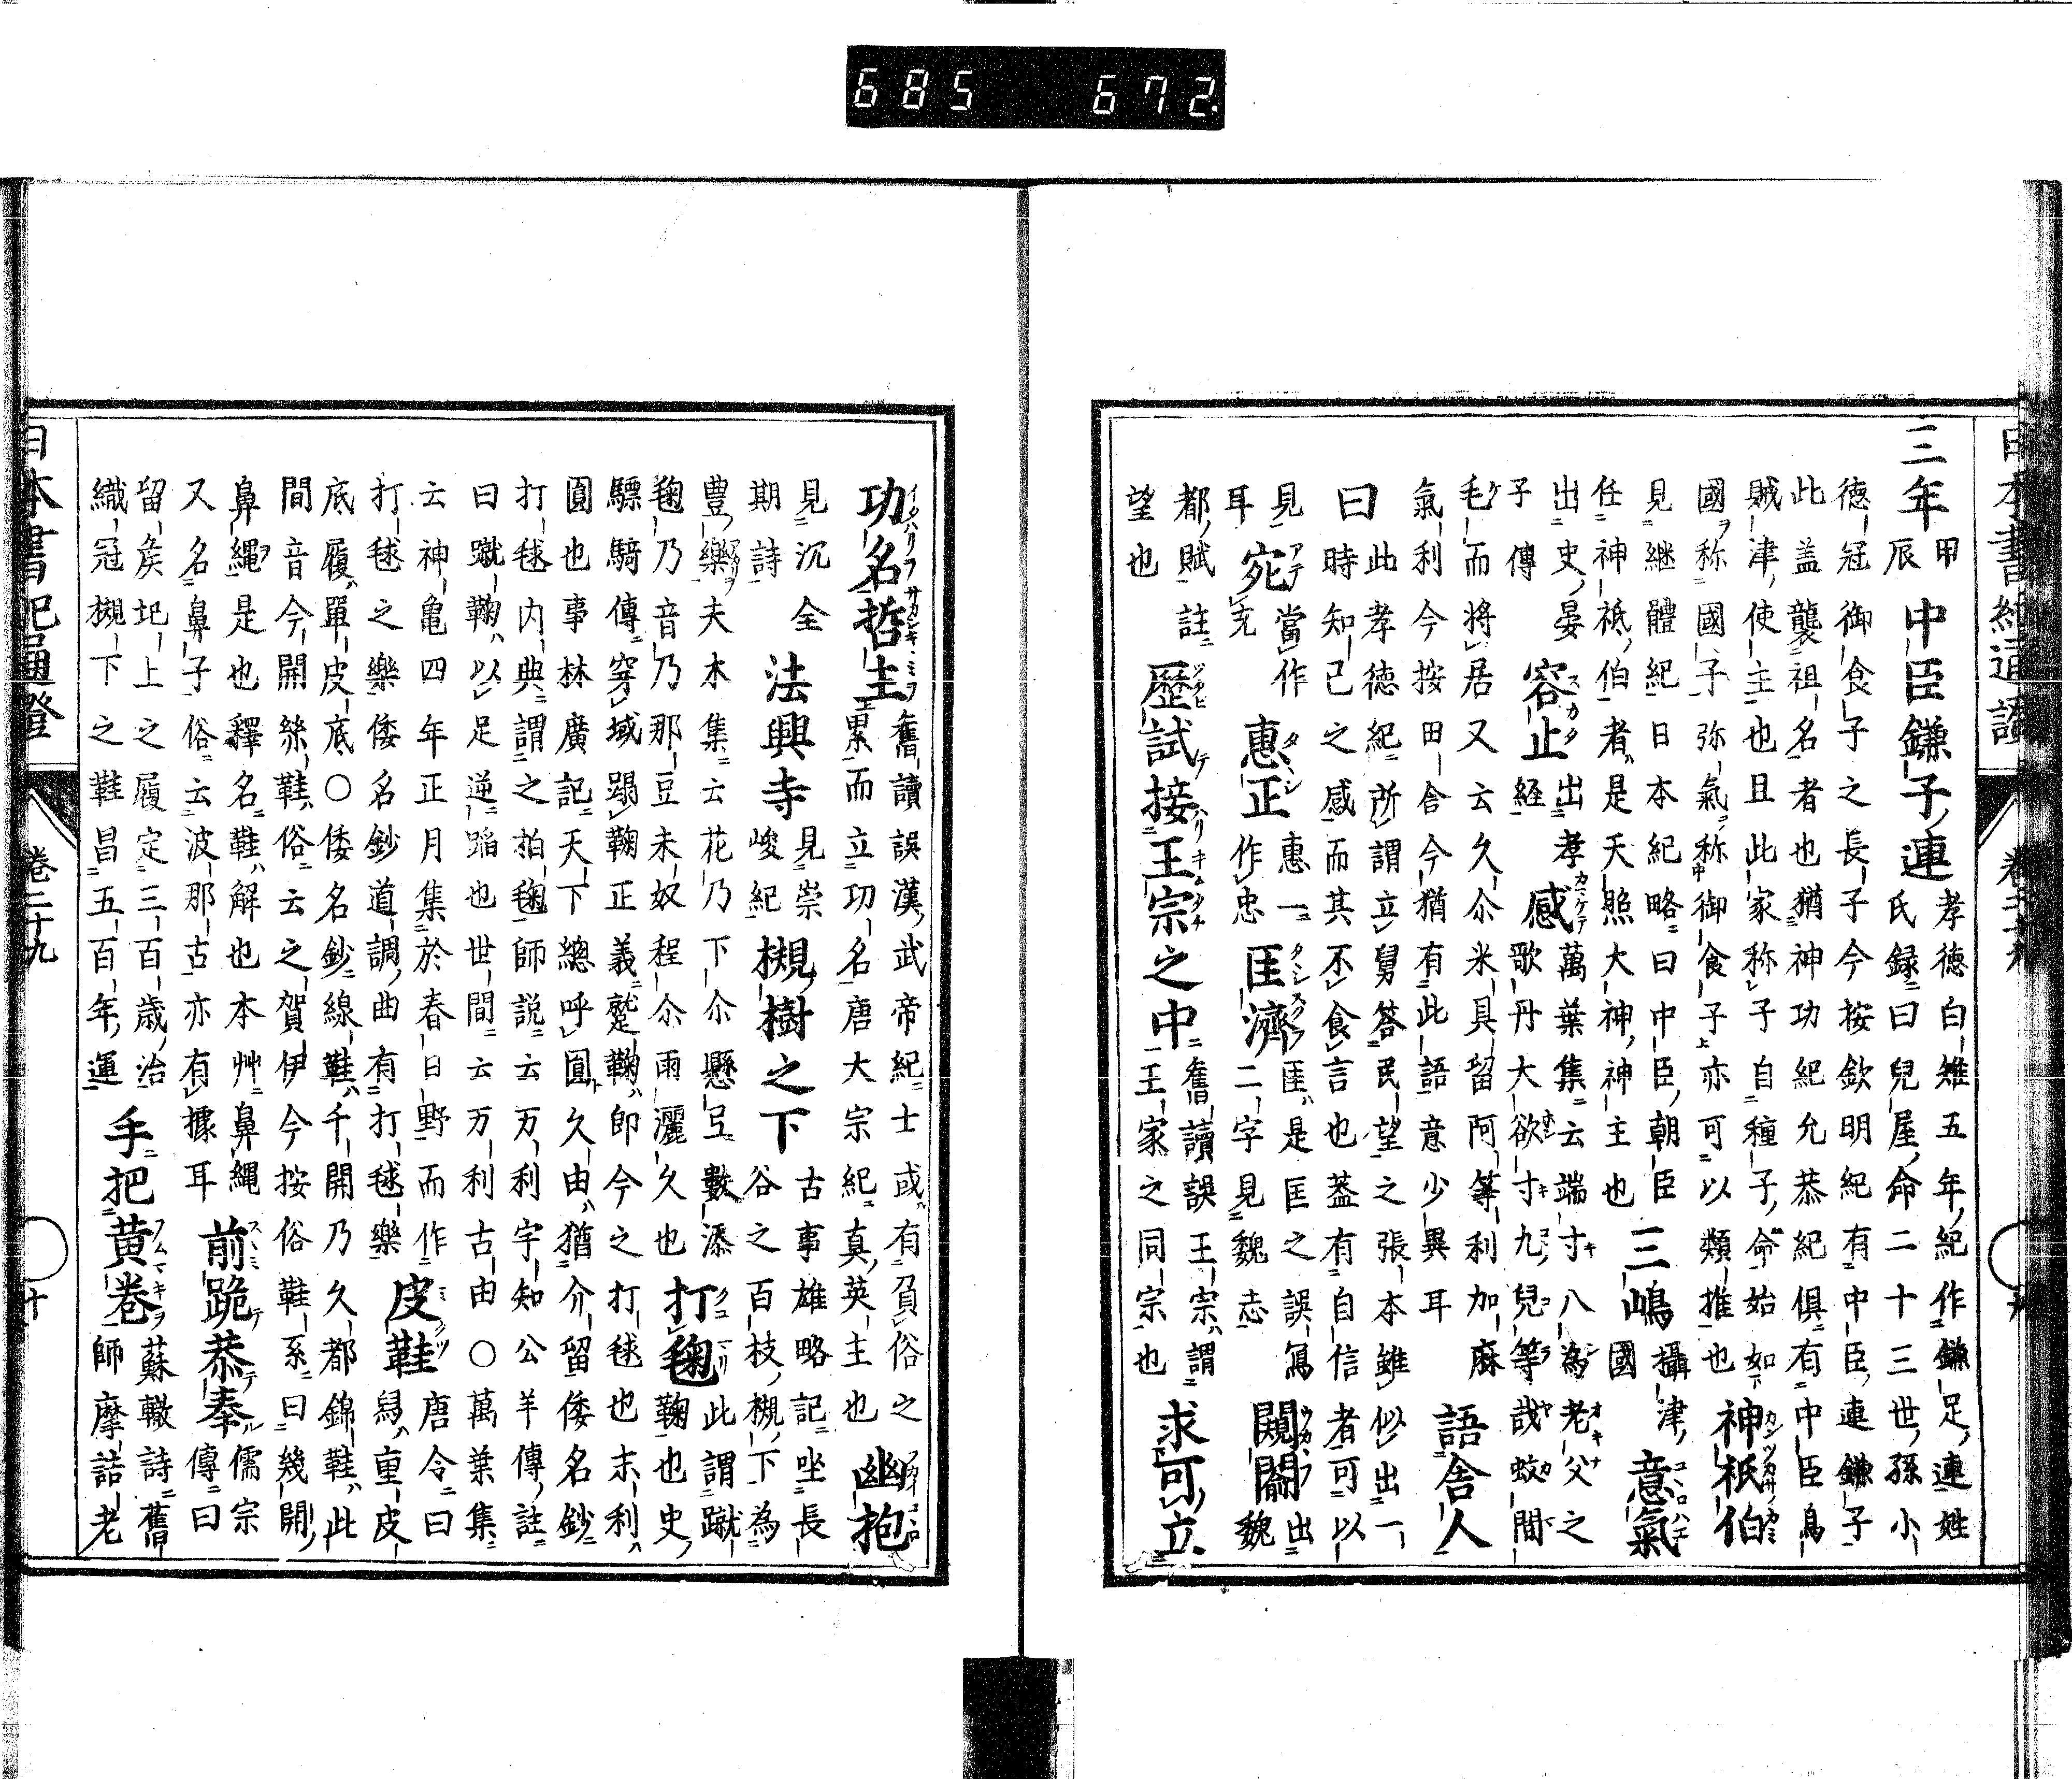 685 672
日本書紀通證
三年甲辰中臣鎌子連孝德白雉五年紀作鎌足連姓氏録曰兒屋命二十三世孫小
德冠御食子之長子今按欽明紀有中臣連鎌子
此盖襲祖名者也猶神功紀允恭紀俱有中臣烏
賊津使主也且此家称子自種子命始如
國称國子弥氣称御食子亦可以類推也神祇伯
見継體紀日本紀略曰中臣朝臣
任神祗伯者是天照大神神主也三嶋攝津國意氣
出史晏子傳容止出孝経感萬葉集云端寸八為老父之歌丹大欲寸九兒等哉蛟間
毛而將居又云久尒米具留阿等利加麻
氣利今按田舎今猶有此語意少異耳語舎人
曰此孝德紀所謂立舅答民望之張本雖似出一時知己之感而其不食言也葢有自信者可以
見耳宛當作充惠正惠一作忠匡濟匡是匡之誤寫二字見魏志闚䦧出魏
都賦註望也歴試接王宗之中舊讀誤王宗謂王家之同宗也求可立
功名哲主舊讀誤漢武帝紀士或有負俗之累而立功名唐大宗紀真英主也幽抱
見沉全期詩法興寺見崇峻紀槻樹之下古事雄略記坐長谷之百枝槻下為
豊樂夫木集云花乃下尒懸弖數添此謂蹴
鞠乃音乃那豆未奴程尒雨灑久也打鞠鞠也史
驃騎傳穿域蹋鞠正義蹵鞠即今之打毬也末利
圓也事林廣記天下總呼圓久由猶介留倭名鈔
打毬内典謂之拍鞠師説云万利宇知公羊傳註
曰蹴鞠以足逆蹈也世間云万利古由〇萬葉集
云神亀四年正月集於春日野而作打毬之樂倭名鈔道調曲有打毬樂皮鞋唐令曰舃重皮
底履單皮底〇倭名鈔線鞋千開乃久都錦鞋此
間音今開絲鞋俗云之賀伊今按俗鞋系曰幾開
鼻縄是也釋名鞋解也本艸鼻縄
又名鼻子俗云波那古亦有據耳前跪恭奉儒宗傳曰
留矦圯上之履定三百歳治
織冠槻下之鞋昌五百年運手把黄巻蘇轍詩舊師摩詰老
日本書紀通證
巻二十九
十